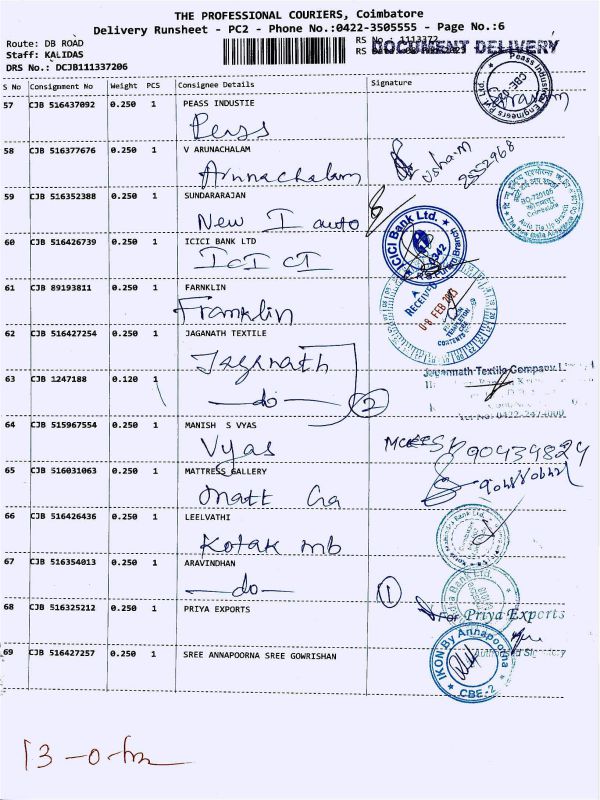 THE PROFESSIONAL COURIERS, Coimbatore
Delivery Runsheet - PC2 - Phone No.:0422-3505555 - Page No.:6
Route: DB ROAD
Staff: KALIDAS
DRS No.: DCJB111337206
RS No : 1113372
DOCUMENT DELIVERY
S No Consignment No Weight PCS Consignee Details Signature
57 CJB 516437092 0.250 1 PEASS INDUSTIE
Peass
Peass Industrial Engineers Pvt Ltd.
58 CJB 516377676 0.250 1 V ARUNACHALAM
Arunachalam
2552968
59 CJB 516352388 0.250 1 SUNDARARAJAN
New I auto
60 CJB 516426739 0.250 1 ICICI BANK LTD
ICICI
ICICI Bank Ltd.
61 CJB 89193811 0.250 1 FARNKLIN
Franklin
RECEIVED
08 FEB 2023
62 CJB 516427254 0.250 1 JAGANATH TEXTILE
Jaganath
Jagannath Textile Company
63 CJB 1247188 0.120 1
do 2
64 CJB 515967554 0.250 1 MANISH S VYAS
Vyas
9043482
65 CJB 516031063 0.250 1 MATTRESS GALLERY
matt Ga
66 CJB 516426436 0.250 1 LEELVATHI
Kotak mb
67 CJB 516354013 0.250 1 ARAVINDHAN
do 1
68 CJB 516325212 0.250 1 PRIYA EXPORTS
For Priya Exports
Authorised Signatory
69 CJB 516427257 0.250 1 SREE ANNAPOORNA SREE GOWRISHAN
IKON By Annapoorna
CBE-2